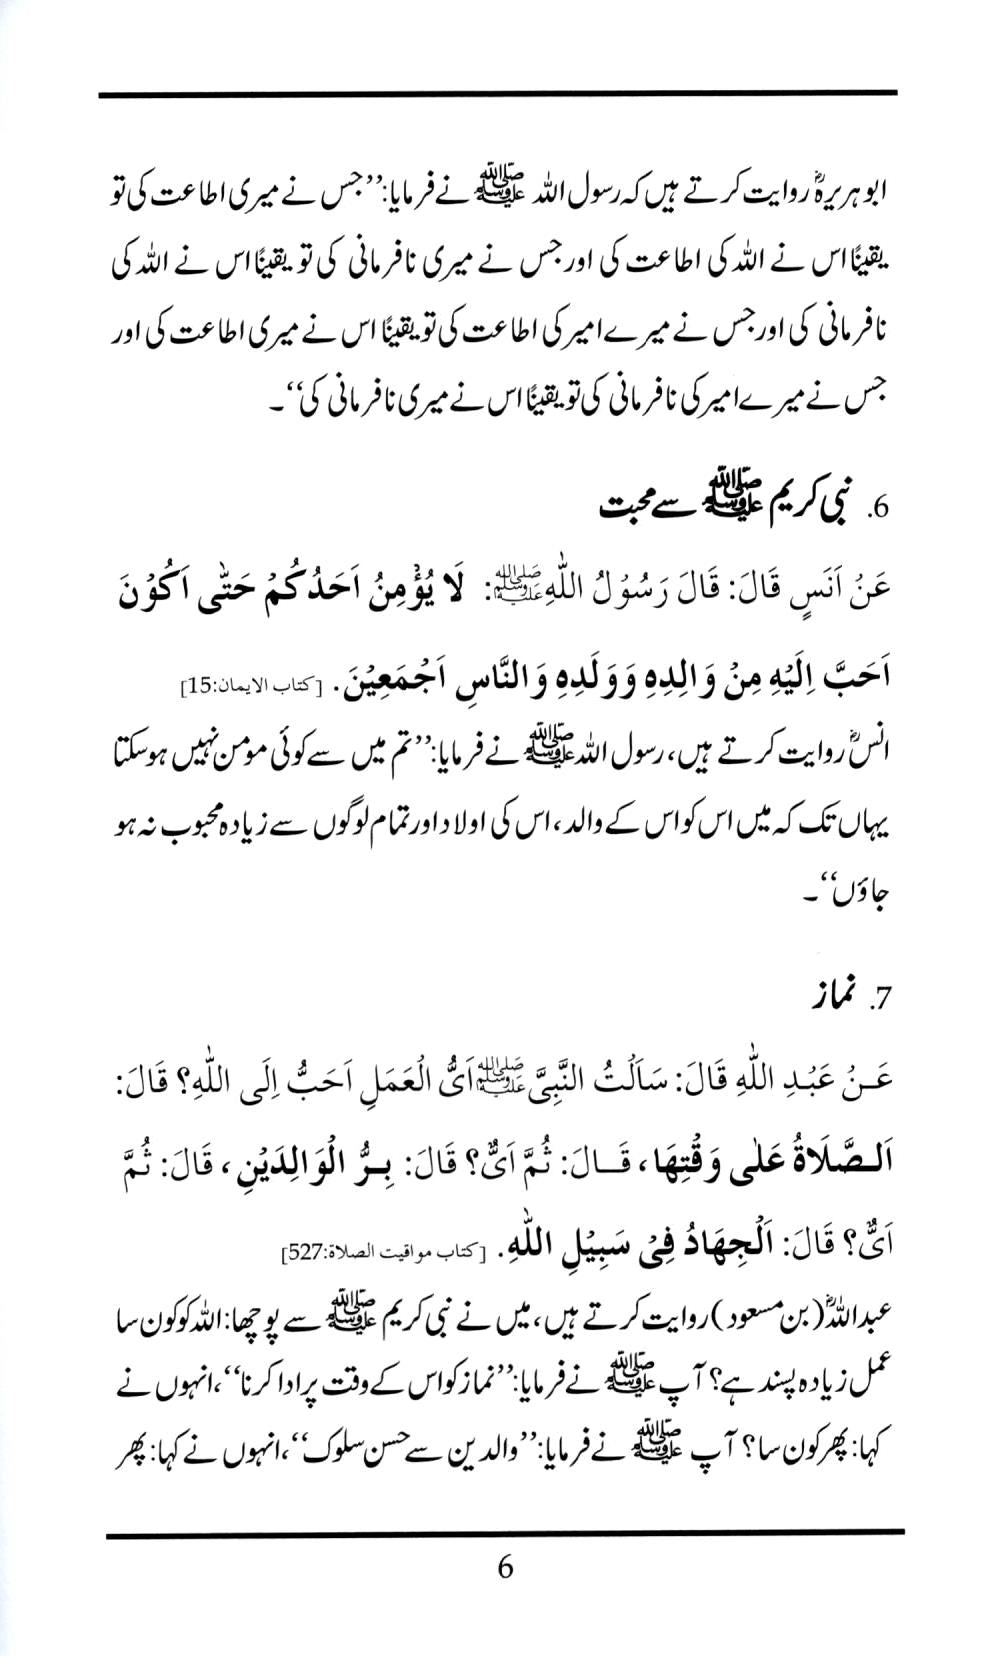 ابو ہریرہؓ روایت کرتے ہیں کہ رسول اللہ ﷺ نے فرمایا:’’جس نے میری اطاعت کی تو
یقیناً اس نے اللہ کی اطاعت کی اور جس نے میری نافرمانی کی تو یقیناً اس نے اللہ کی
نافرمانی کی اور جس نے میرے امیر کی اطاعت کی تو یقیناً اس نے میری اطاعت کی اور
جس نے میرے امیر کی نافرمانی کی تو یقیناً اس نے میری نافرمانی کی‘‘۔
6. نبی کریم ﷺ سے محبت
عَنْ اَنَسٍ قَالَ: قَالَ رَسُوْلُ اللّٰهِ ﷺ: لَا يُؤْمِنُ اَحَدُكُمْ حَتّٰى اَكُوْنَ
اَحَبَّ اِلَيْهِ مِنْ وَالِدِهٖ وَوَلَدِهٖ وَالنَّاسِ اَجْمَعِيْنَ. [کتاب الایمان:15]
انسؓ روایت کرتے ہیں، رسول اللہ ﷺ نے فرمایا:’’تم میں سے کوئی مومن نہیں ہو سکتا
یہاں تک کہ میں اس کو اس کے والد، اس کی اولاد اور تمام لوگوں سے زیادہ محبوب نہ ہو
جاؤں‘‘۔
7. نماز
عَنْ عَبْدِ اللّٰهِ قَالَ: سَاَلْتُ النَّبِيَّ ﷺ اَيُّ الْعَمَلِ اَحَبُّ اِلَى اللّٰهِ؟ قَالَ:
اَلصَّلَاةُ عَلٰى وَقْتِهَا، قَالَ: ثُمَّ اَيٌّ؟ قَالَ: بِرُّ الْوَالِدَيْنِ، قَالَ: ثُمَّ
اَيٌّ؟ قَالَ: اَلْجِهَادُ فِيْ سَبِيْلِ اللّٰهِ. [کتاب مواقیت الصلاة:527]
عبداللہؓ (بن مسعود) روایت کرتے ہیں، میں نے نبی کریم ﷺ سے پوچھا: اللہ کو کون سا
عمل زیادہ پسند ہے؟ آپ ﷺ نے فرمایا:’’نماز کو اس کے وقت پر ادا کرنا‘‘، انہوں نے
کہا: پھر کون سا؟ آپ ﷺ نے فرمایا:’’والدین سے حسن سلوک‘‘، انہوں نے کہا: پھر
6